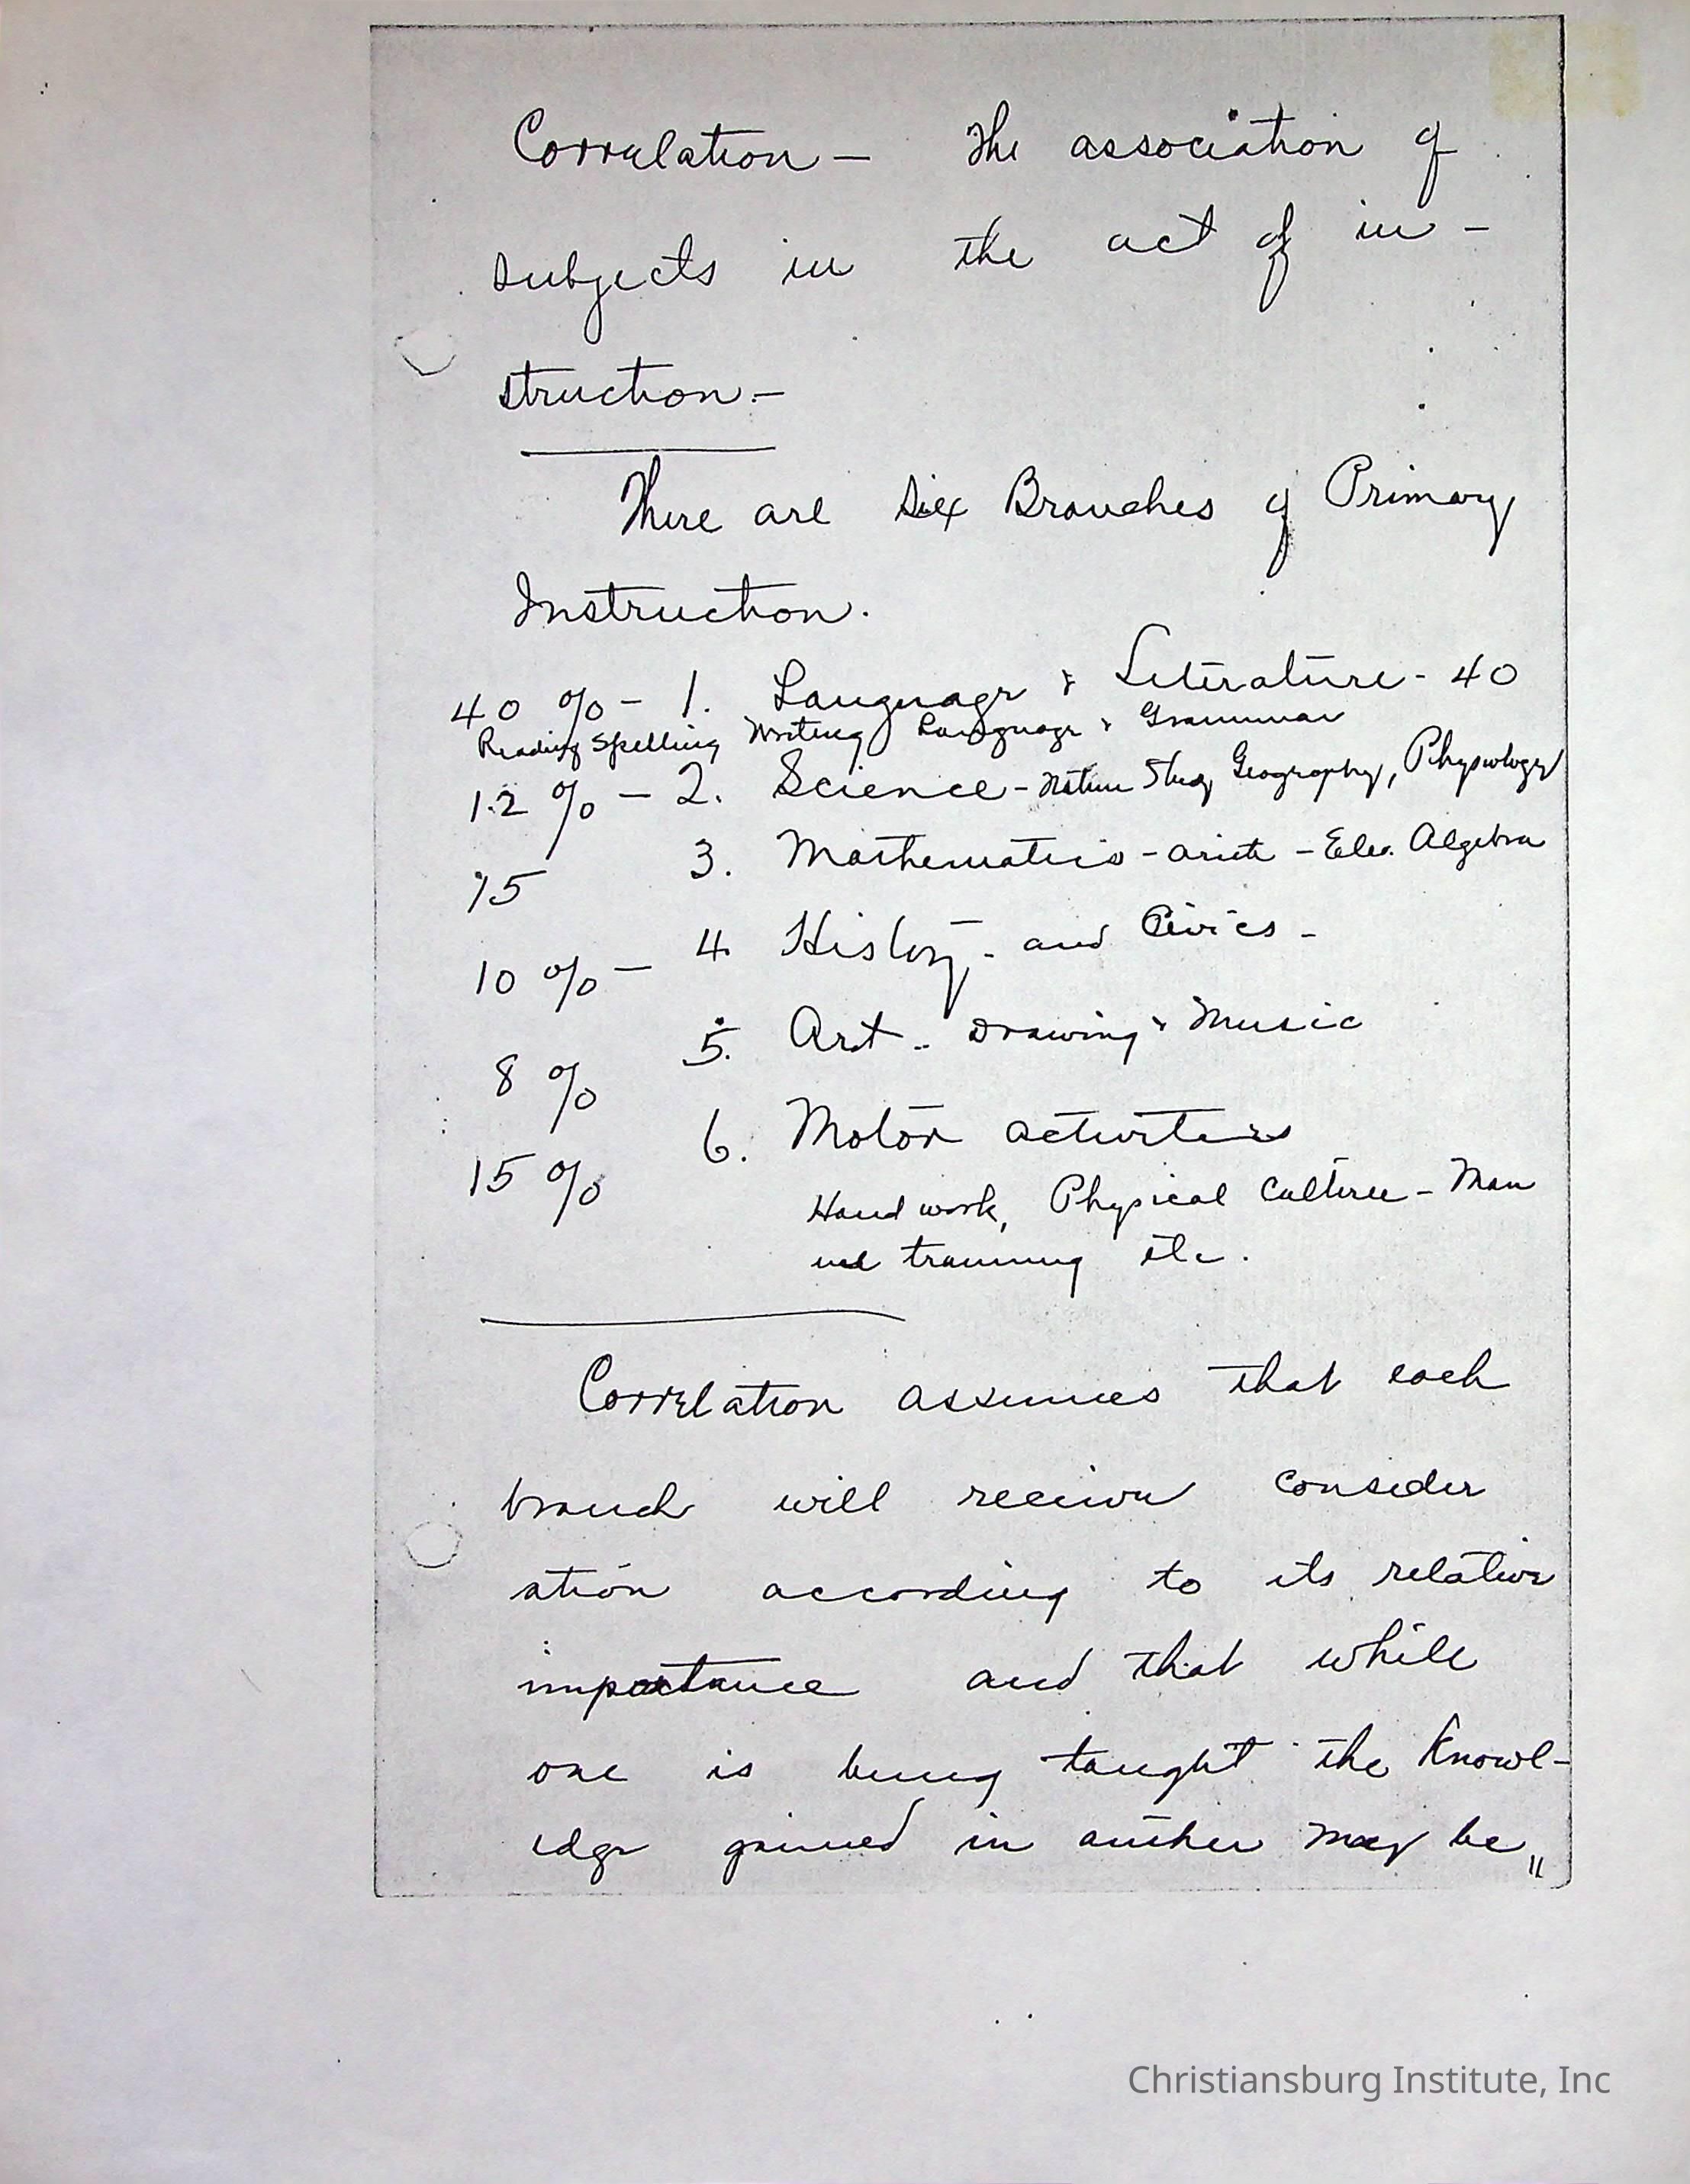 Correlation — The association of
subjects in the act of in-
struction.—
There are Six Branches of Primary
Instruction.
40 % - 1. Language & Literature - 40
Reading Spelling Writing Language & Grammar
12 % - 2. Science - Nature Study Geography, Physiology
15 3. Mathematics - arith - Ele. Algebra
10 % - 4. History - and Civics -
8 % 5. Art - Drawing & Music
15 % 6. Motor activities
Hand work, Physical Culture - Man
ual training etc.
Correlation assumes that each
branch will receive consider
ation according to its relative
importance and that while
one is being taught the Knowl-
edge gained in another may be "
Christiansburg Institute, Inc